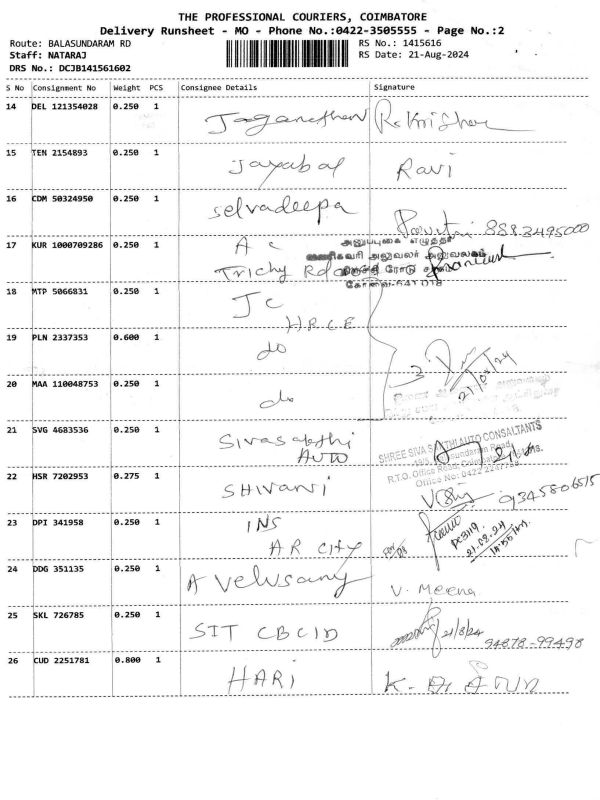 THE PROFESSIONAL COURIERS, COIMBATORE
Delivery Runsheet - MO - Phone No.:0422-3505555 - Page No.:2
Route: BALASUNDARAM RD RS No.: 1415616
Staff: NATARAJ RS Date: 21-Aug-2024
DRS No.: DCJB141561602
S No Consignment No Weight PCS Consignee Details Signature
14 DEL 121354028 0.250 1 Jaganathan
15 TEN 2154893 0.250 1 Jayabal Ravi
16 CDM 50324950 0.250 1 Selvadeepa 8883495000
17 KUR 1000709286 0.250 1 A c
Trichy Rd
அனுப்புகை எழுத்தர்
அலுவலர் அலுவலகம்
ரோடு
18 MTP 5066831 0.250 1 JC
H.R.C.E
19 PLN 2337353 0.600 1 do
20 MAA 110048753 0.250 1 do 21/08/24
21 SVG 4683536 0.250 1 Sivasakthi
AUTO
SHREE SIVA SAKTHI AUTO CONSULTANTS
R.T.O. Office Road,
Office No: 0422
22 HSR 7202953 0.275 1 SHIVANI 9345806515
23 DPI 341958 0.250 1 INS
AR CITY
21.08.24
24 DDG 351135 0.250 1 A Velusamy V. Meena
25 SKL 726785 0.250 1 SIT CBCID 21/8/24
94878-99498
26 CUD 2251781 0.800 1 HARI K.